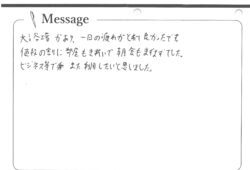 Message
大浴場があり、一日の疲れがとれて良かったです
値段の割に部屋もきれいで朝食もまずまずでした。
ビジネス等でまた利用したいと思いました。